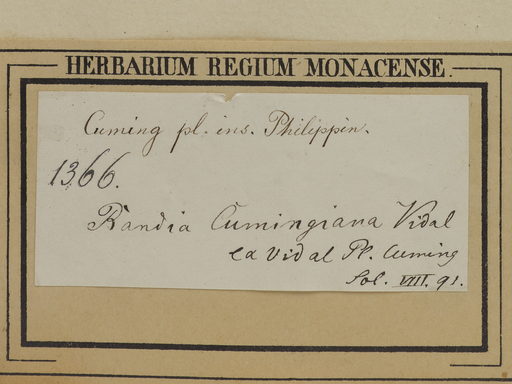 HERBARIUM REGIUM MONACENSE.
Cuming pl. ins. Philippin.
1366.
Randia Cumingiana Vidal
ex Vidal Pl. Cuming
Sol. VIII. 91.